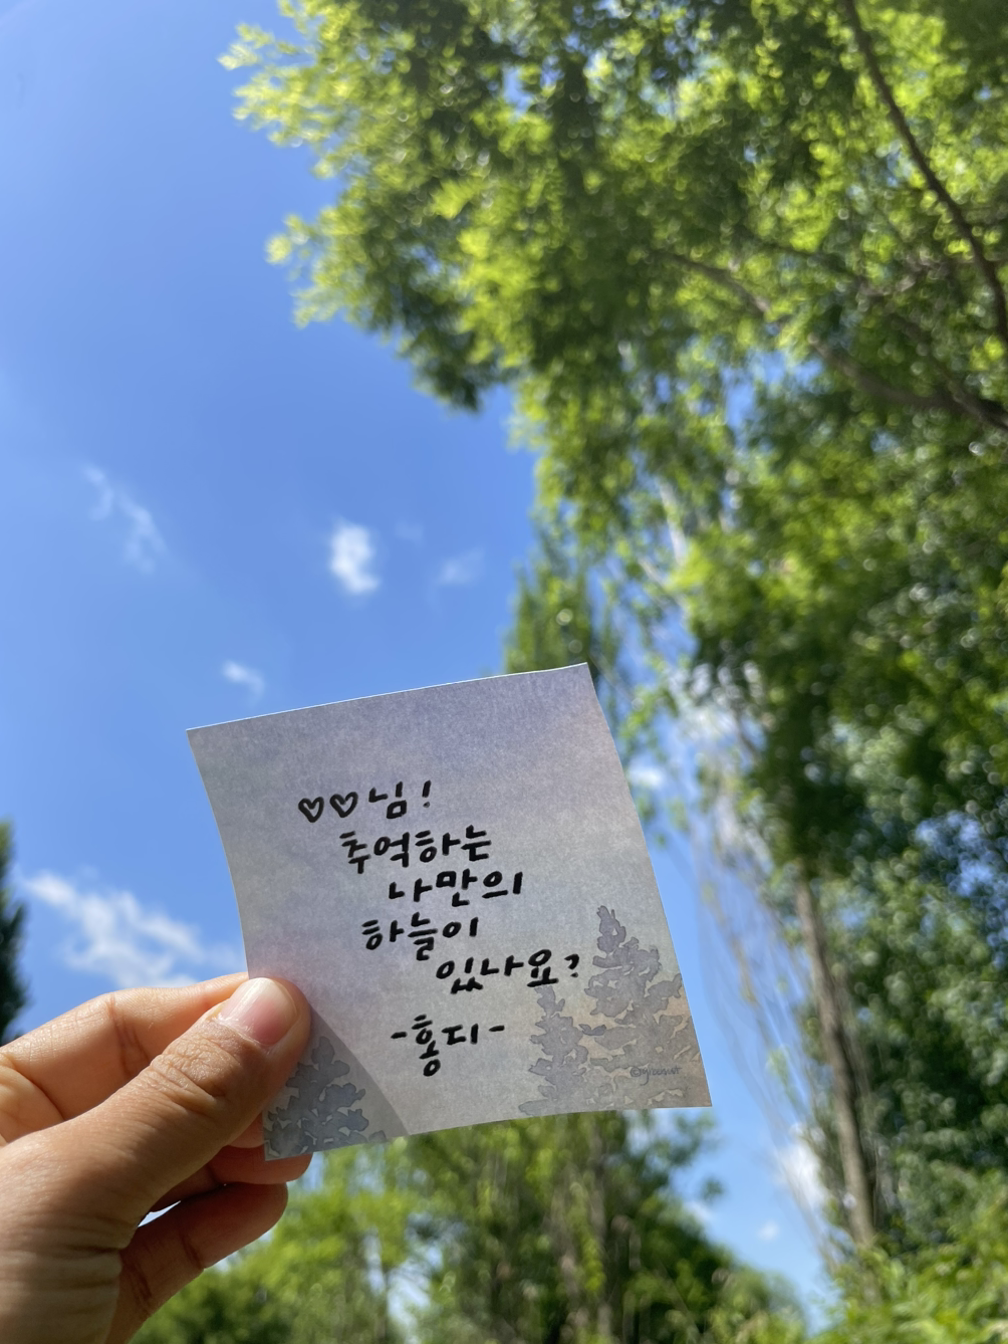 ♡♡님!
추억하는
나만의
하늘이
있나요?
-홍디-